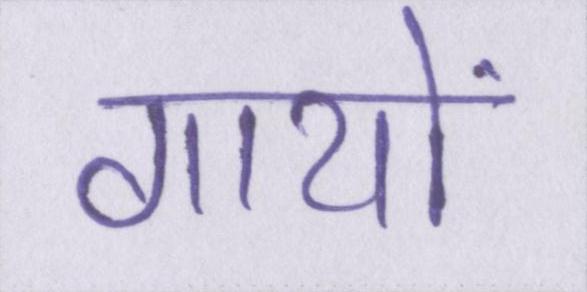 गायों